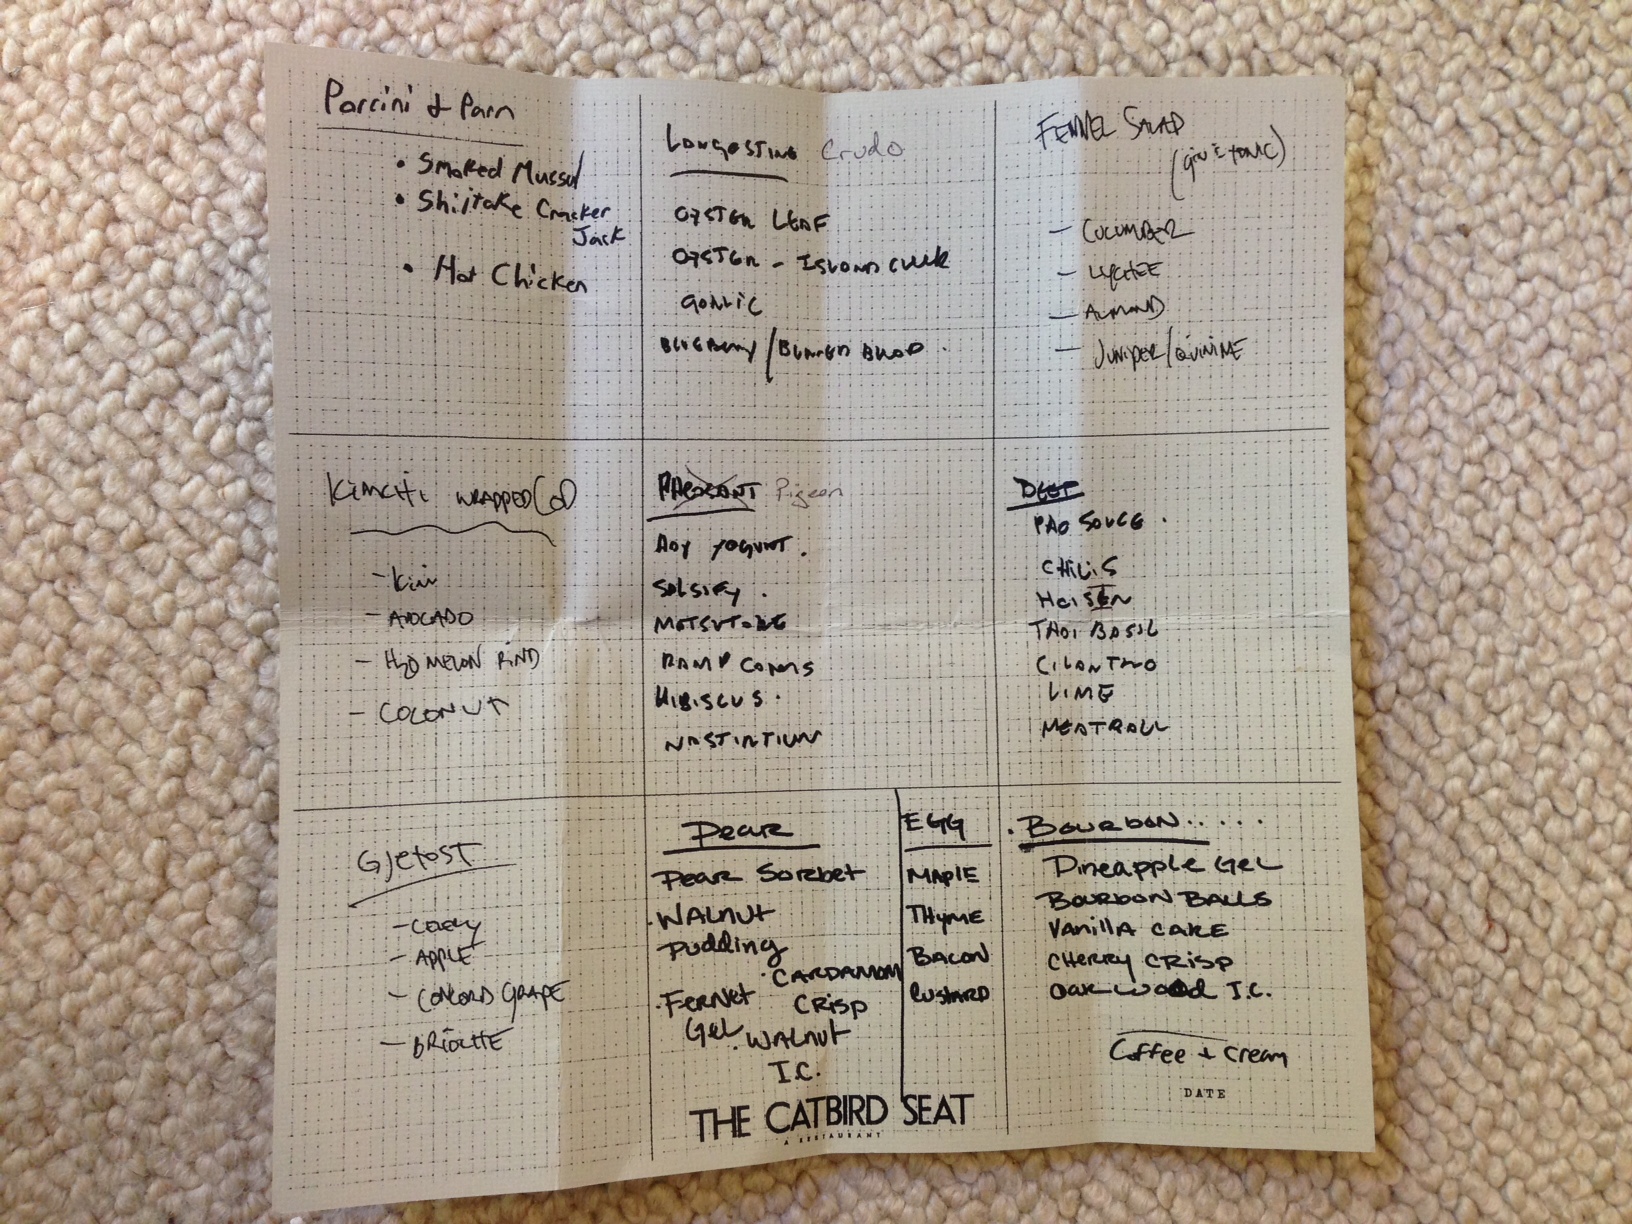 Porcini & Parm
• Smoked Mussel
• Shiitake Cracker
Jack
• Hot Chicken
LANGOSTINE Crudo
OYSTER LEAF
OYSTER - ISLAND CREEK
GARLIC
BLUEBERRY / BURNED BREAD
FENNEL SALAD
(GIN & TONIC)
- CUCUMBER
- LYCHEE
- ALMOND
- JUNIPER/QUININE
KIMCHI WRAPPED COD
- KIWI
- AVOCADO
- H2O MELON RIND
- COCONUT
PHEASANT Pigeon
YOGURT.
SALSIFY.
MATSUTAKE
RAMP
HIBISCUS.
NASTIRTIUM
BEEF
PHO SAUCE.
CHILIS
HOISIN
THAI BASIL
CILANTRO
LIME
MEATBALL
GJETOST
- CELERY
- APPLE
- CONCORD GRAPE
- BRIOCHE
Pear
Pear Sorbet
. WALNUT
Pudding
. CARDAMOM
CRISP
. FERNET
GEL
. WALNUT
I.C.
EGG
MAPLE
THYME
BACON
CUSTARD
. BOURBON.....
Pineapple GEL
BOURBON BALLS
Vanilla CAKE
CHERRY CRISP
Oak wood I.C.
Coffee + Cream
DATE
THE CATBIRD SEAT
A RESTAURANT